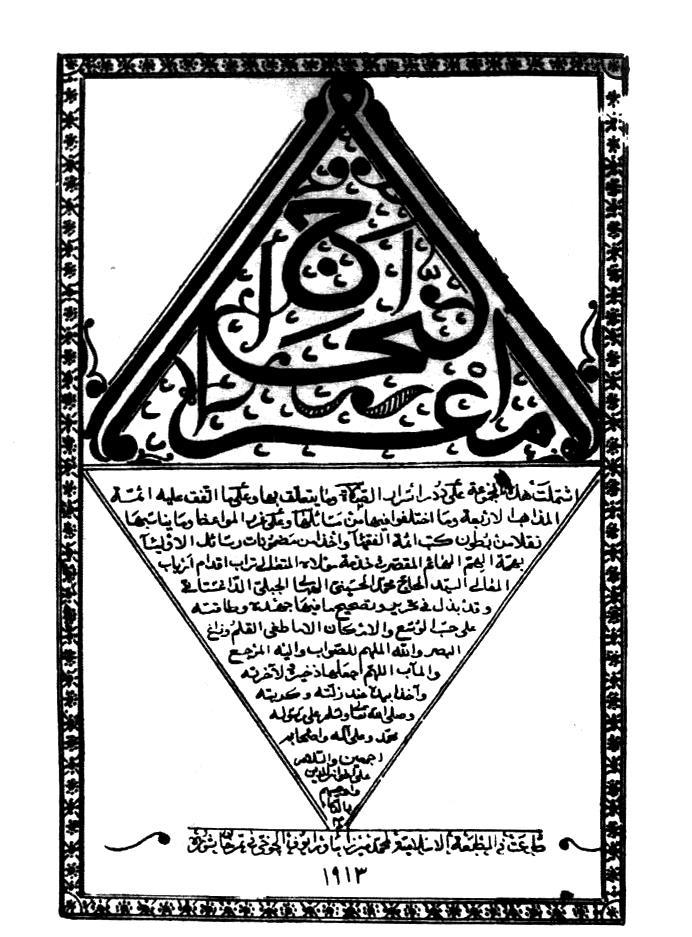 معراج الحاج
اشتملت هذه المجموعة على درر اسرار القبلة وما يتعلق بها وعلى ما اتفق عليه ائمة
المذاهب الاربعة وما اختلفوا فيها من مسائلها وعلى غرر المواعظ وما يناسبها
نقلا من بطون كتب ائمة الفقهاء وأخذا من مضمونات رسائل الاولياء
بهمة الهم المقصر في خدمة مولاه المتعال تراب اقدام ارباب
المعالى السيد الحاج محمد الحسيني الجبلى الداغستانى
وقد بذل في تحريره وتصحيح ما فيها جهده وطاقته
على حسب الوسع والامكان الا ما طغى القلم وزاغ
البصر والله الملهم للصواب واليه المرجع
والمآب اللهم اجعلها ذخيرة لآخرته
وآخذا بيده عند زلته وكربته
وصلى الله تعالى وسلم على رسوله
محمد وعلى آله واصحابه
اجمعين والسلام
على اخواني الدين
طبعت في المطبعة الاسلامية لمحمد ميرزا ماورايوف الجوخى في تمرخان شوره
١٩١٣